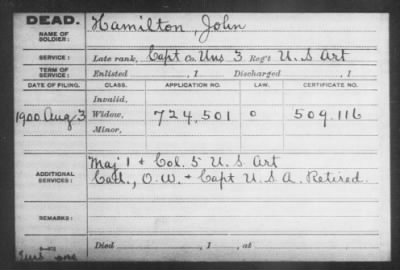 DEAD.
NAME OF SOLDIER: Hamilton, John
SERVICE: Late rank, Capt Co. Uns 3 Reg't U.S Art
TERM OF SERVICE: Enlisted , 1 Discharged , 1
DATE OF FILING. CLASS. APPLICATION NO. LAW. CERTIFICATE NO.
Invalid,
1900 Aug 3 Widow, 724,501 O 509.116
Minor,
Maj 1 + Col. 5 U.S Art
ADDITIONAL SERVICES: Cad., O.W. + Capt U.S.A. Retired.
REMARKS:
Died , 1 , at